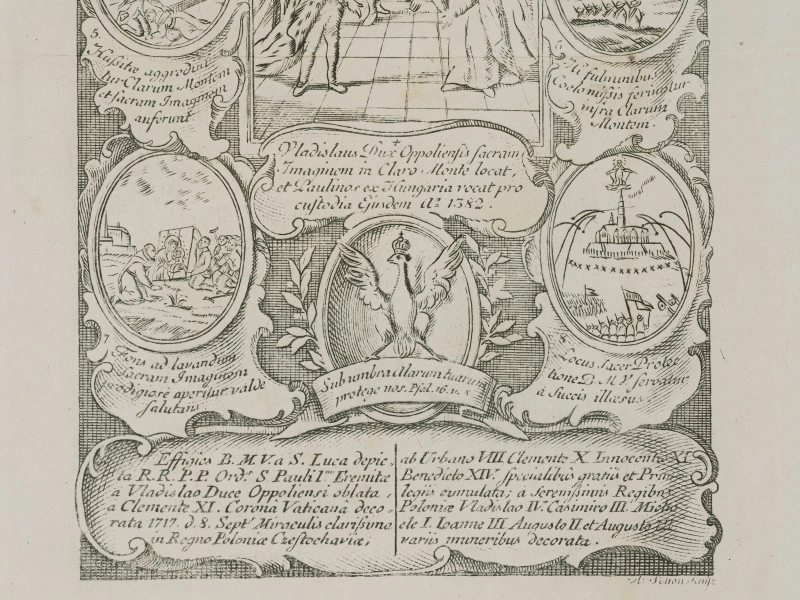 5.
Hussitæ aggrediun
tur Clarum Montem
et sacram Imaginem
auferunt
6. Hi fulminibus
Coelo missis feriuntur
infra Clarum
Montem.
Vladislaus Dux Oppoliensis sacram
Imaginem in Claro Monte locat,
et Paulinos ex Hungaria vocat pro
custodia Ejusdem Aº 1382.
7. Fons ad lavandum
sacram Imaginem
prodigiosè aperitur valde
salutaris
8.
Locus sacer Protec
tione B. M. V. servatur
à Suecis illæsus
Sub umbra Alarum tuarum
protege nos. Psal. 16. v. 8
Effigies B. M. V. à S. Luca depic,
ta R. R. P. P. Ord. S. Pauli I. Eremitæ
à Vladislao Duce Oppoliensi oblata,
a Clemente XI. Corona Vaticana deco,
rata 1717. d. 8. Sept. Miraculis clarissima
in Regno Poloniæ Częstochaviæ,
ab Urbano VIII Clemente X. Innocentio XI
Benedicto XIV. specialibus gratiis et Privi
legiis cumulata; a Serenissimis Regibus
Poloniæ Vladislao IV. Casimiro III. Micha
ele I. Ioanne III Augusto II et Augusto III
variis muneribus decorata.